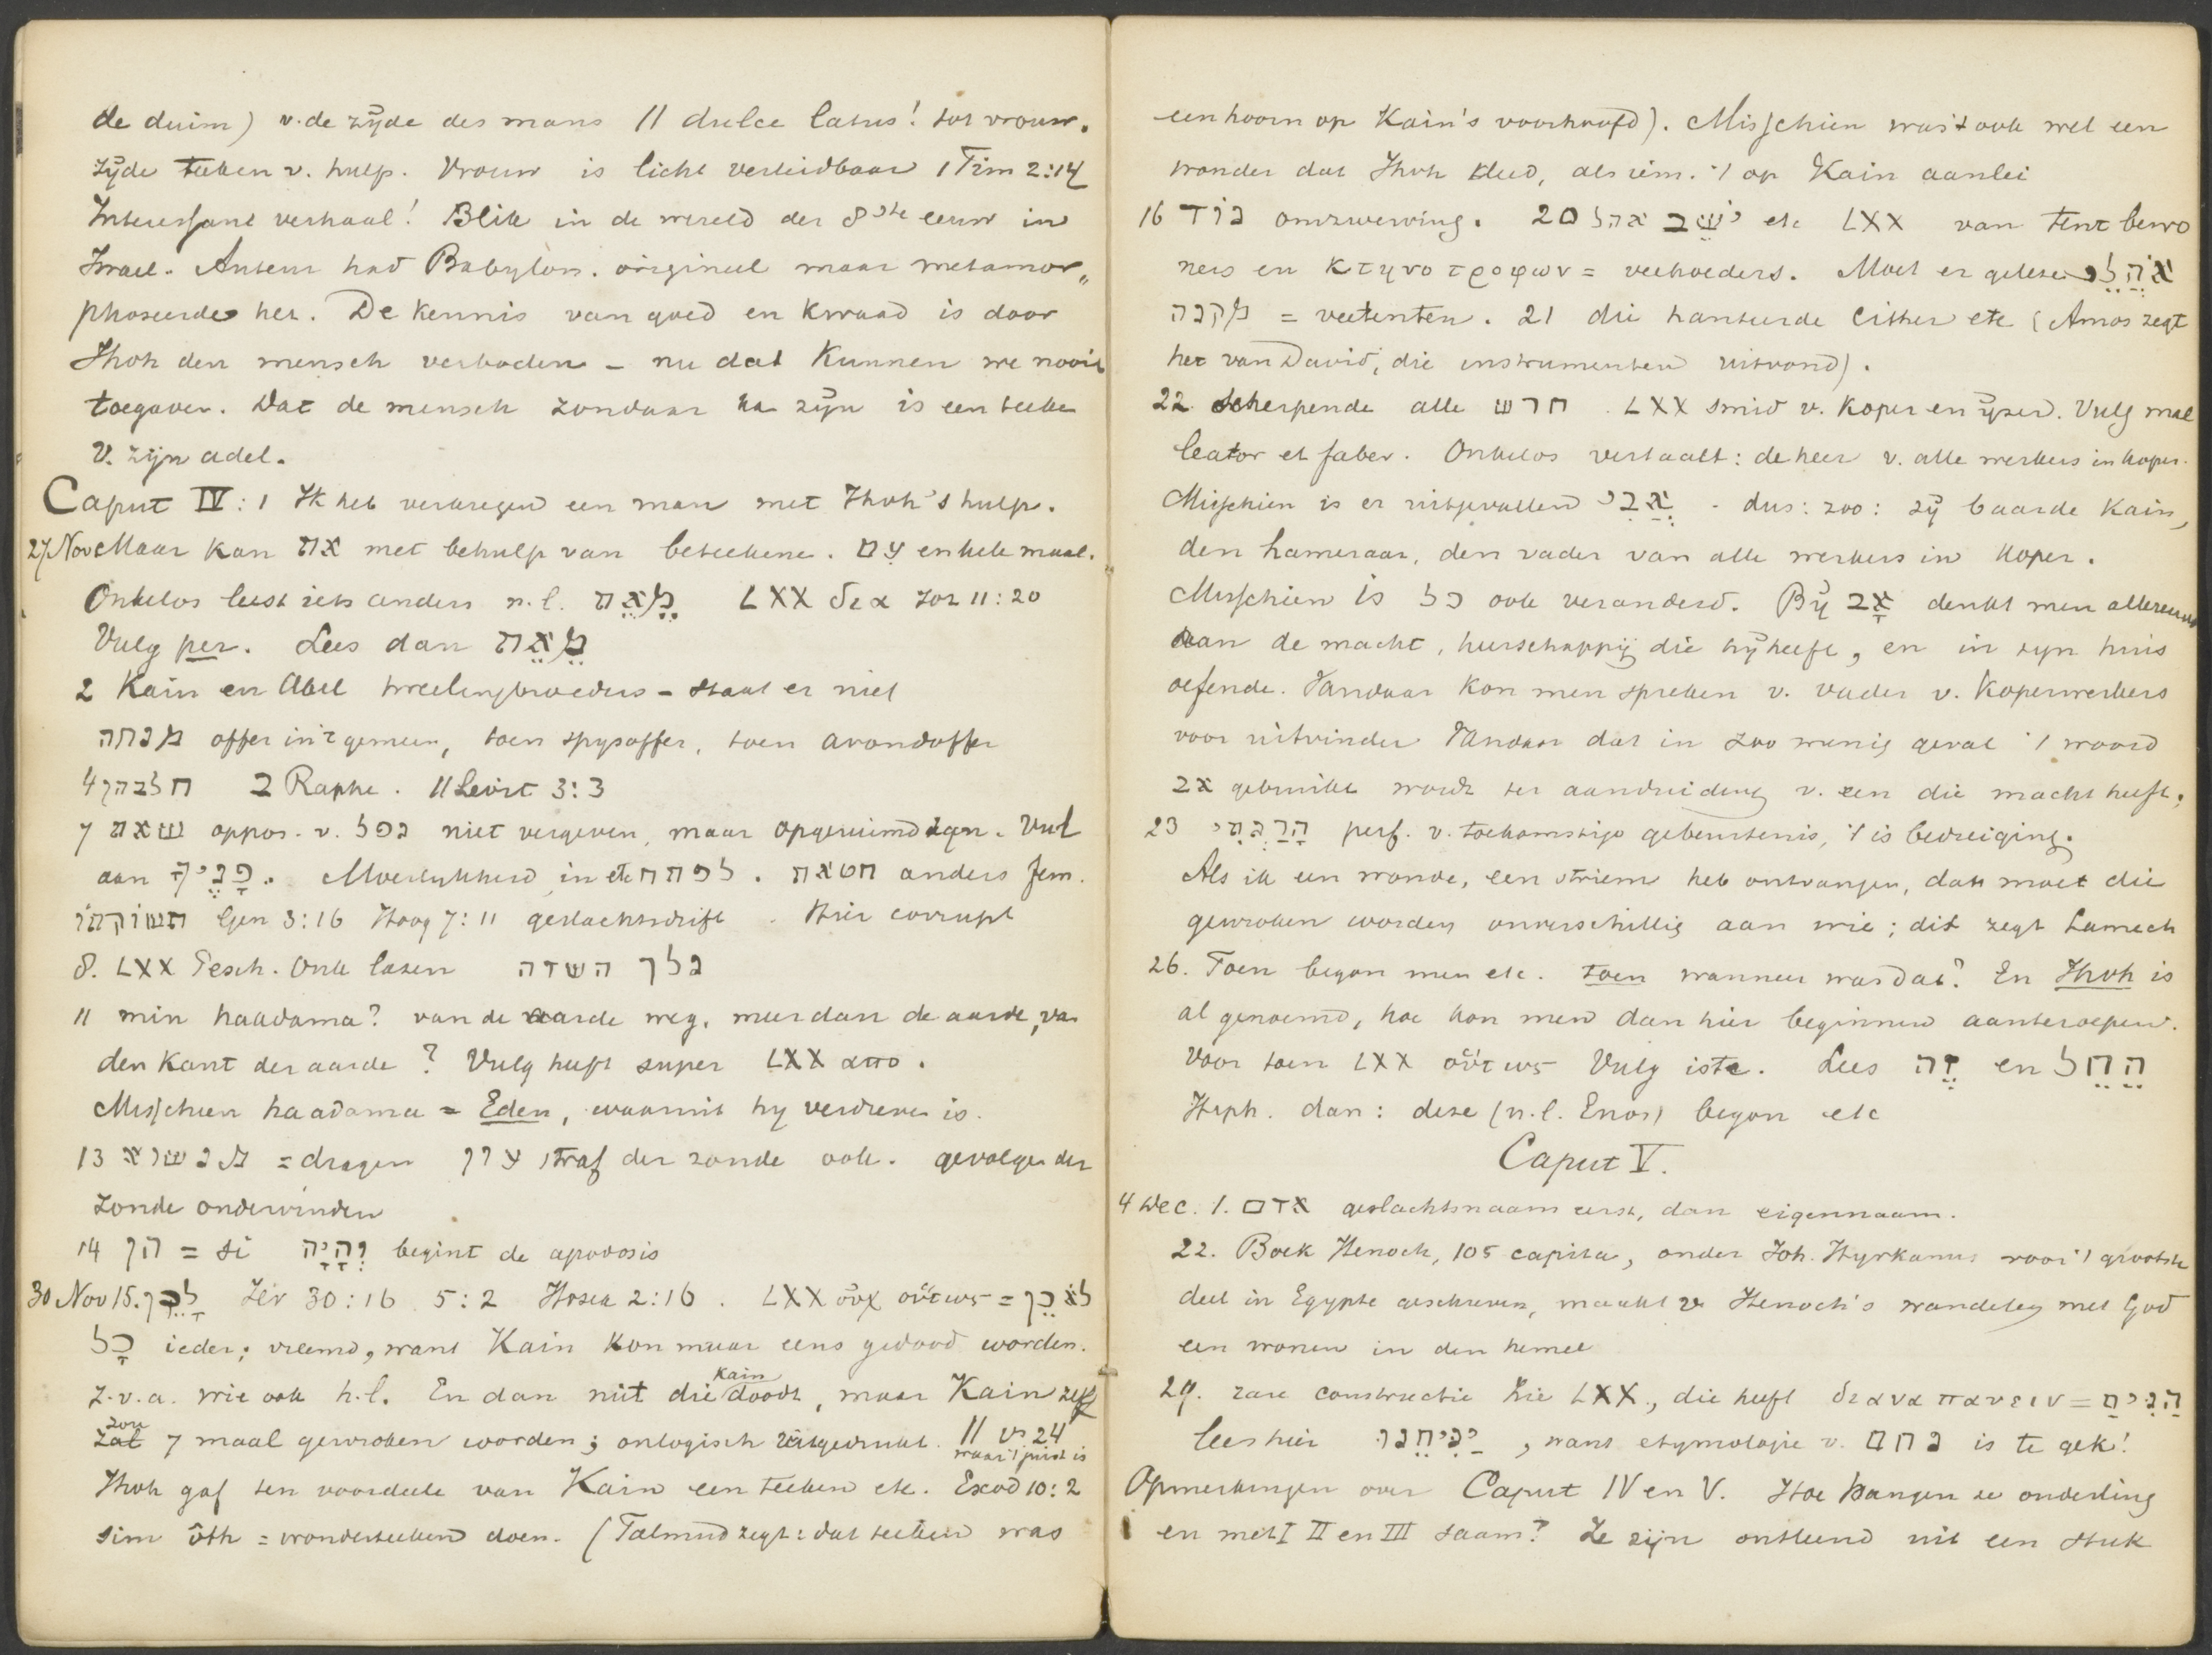 de duim) v. de zijde des mans // dulce latus! tot vrouw.
zijde teeken v. hulp. Vrouw is licht verleidbaar 1 Tim 2:14
Interessant verhaal! Blik in de wereld der 8ste eeuw in
Israel. Auteur had Babylon. origineel maar metamor„
phoseerde het. De kennis van goed en kwaad is door
Jhvh den mensch verboden – nu dat kunnen we nooit
toegeven. Dat de mensch zondaar kan zijn is een teeken
v. zijn adel.
Caput IV: 1 Ik heb verkregen een man met Jhvh's hulp.
27 Nov Maar kan את met behulp van beteekene. עִם enkele maal.
Onkelos leest iets anders n.l. מֵאֵת LXX δια Joz 11:20
Vulg per. Lees dan מֵאֵת
2 Kain en Abel tweelingbroeders – staat er niet
מנחה offer in 't gemeen, toen spijsoffer, toen avondoffer
4 חלבהן ב Raphe. // Levit 3:3
7 שאת oppos. v. נפל niet vergeven, maar opgeruimd zijn. Vul
aan פָּנֶיךָ. Moeilijkheid in etc לפתח. חטאת anders fem.
תשוקתו Gen 3:16 Hoog 7:11 geslachtsdrift. Hier corrupt
8. LXX Pesch. Onk lazen נלך השדה
11 min haadama? van de aarde weg, meer dan de aarde, van
den kant der aarde? Vulg heeft super LXX απο.
Misschien haadama = Eden, waaruit hij verdreven is.
13 מנשוא = dragen עון straf der zonde ook. gevolgen der
zonde ondervinden
14 הן = si וְהָיָה begint de apodosis
30 Nov 15. לָכֵן Jer 30:16 5:2 Hosea 2:16. LXX οὐχ οὕτως = לֹא כֵן
כָּל ieder; vreemd, want Kain kon maar eens gedood worden.
z.v.a. wie ook h.l. En dan niet die Kain doodt, maar Kain zelf
zal zou 7 maal gewroken worden; onlogisch uitgedrukt. // vs 24 waar 't juist is
Jhvh gaf ten voordeele van Kain een teeken etc. Exod 10:2
sim ôth = wonderteeken doen. (Talmud zegt: dat teeken was
een hoorn op Kain's voorhoofd). Misschien was 't ook wel een
wonder dat Jhvh deed, als iem. 't op Kain aanlei
16 נוד omzwerving. 20 יֹשֵׁב אהל etc LXX van tent bewo
ners en κτηνοτροφων = veehoeders. Moet er gelezen אֹהֲלֵי
מקנה = veetenten. 21 die hanteerde Cither etc (Amos zegt
het van David, die instrumenten uitvond).
22 scherpende alle חרש. LXX smid v. koper en ijzer. Vulg mal
leator et faber. Onkelos vertaalt: de heer v. alle werkers in koper.
Misschien is er uitgevallen אֲבִי - dus: zoo: zij baarde Kain,
den hameraar, den vader van alle werkers in koper.
Misschien is כל ook veranderd. Bij אָב denkt men allereerst
aan de macht, heerschappij die hij heeft, en in zijn huis
oefende. Vandaar kon men spreken v. vader v. koperwerkers
voor uitvinder Vandaar dat in zoo menig geval 't woord
אב gebruikt wordt ter aanduiding v. een die macht heeft.
23 הָרַגְתִּי perf. v. toekomstige gebeurtenis, 't is bedreiging.
Als ik een wonde, een striem heb ontvangen, dan moet die
gewroken worden onverschillig aan wie; dit zegt Lamech
26. Toen began men etc. toen wanneer was dat? En Jhvh is
al genoemd, hoe kon men dan hier beginnen aanteroepen.
Voor toen LXX οὗτος Vulg iste. Lees זֶה en הֵחֵל
Hiph. dan: deze (n.l. Enos) begon etc
Caput V.
4 Dec. 1. אדם geslachtsnaam eerst, dan eigennaam.
22. Boek Henoch, 105 capita, onder Joh. Hyrkanus voor 't grootste
deel in Egypte geschreven, maakt v Henoch's wandelen met God
een wonen in den hemel
29. rare constructie zie LXX., die heeft διαναπαυσει = הֵנִיחַ
lees hier יְנִיחֵנוּ, want etymologie v. נחם is te gek!
Opmerkingen over Caput IV en V. Hoe hangen ze onderling
en met I II en III saam? Ze zijn ontleend uit een stuk